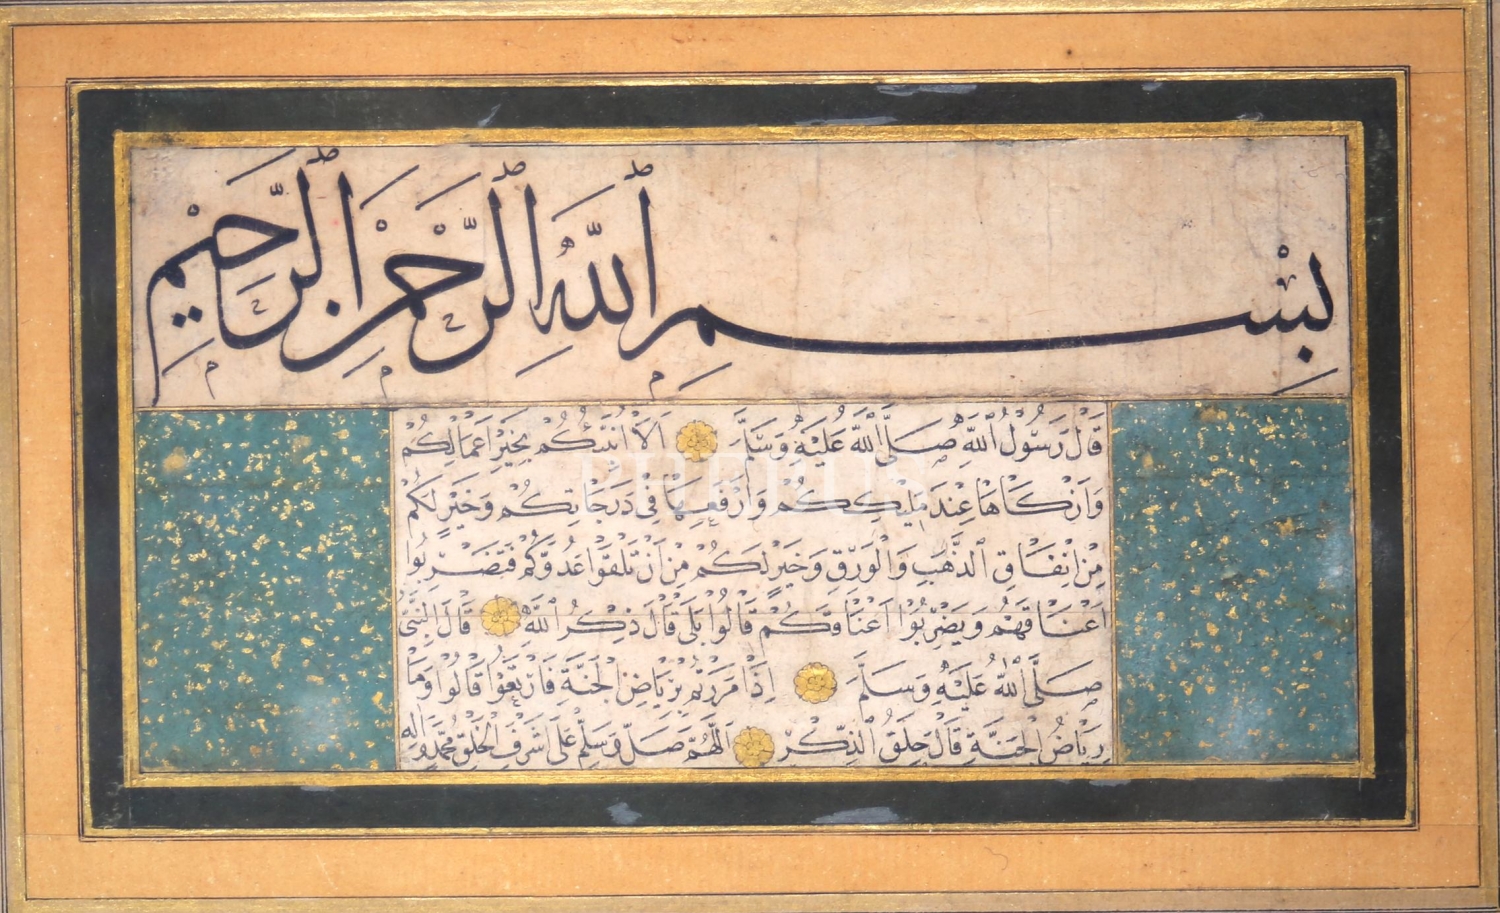 بِسْمِ اللهِ الرَّحْمٰنِ الرَّحِيمِ
قَالَ رَسُولُ اللهِ صَلَّى اللهُ عَلَيْهِ وَسَلَّمَ اَلَا اُنَبِّئُكُمْ بِخَيْرِ اَعْمَالِكُمْ
وَاَزْكَاهَا عِنْدَ مَلِيكِكُمْ وَاَرْفَعِهَا فِى دَرَجَاتِكُمْ وَخَيْرٍ لَكُمْ
مِنْ اِنْفَاقِ الذَّهَبِ وَالْوَرِقِ وَخَيْرٍ لَكُمْ مِنْ اَنْ تَلْقَوْا عَدُوَّكُمْ فَتَضْرِبُوا
اَعْنَاقَهُمْ وَيَضْرِبُوا اَعْنَاقَكُمْ قَالُوا بَلَى قَالَ ذِكْرُ اللهِ قَالَ النَّبِىُّ
صَلَّى اللهُ عَلَيْهِ وَسَلَّمَ اِذَا مَرَرْتُمْ بِرِيَاضِ الْجَنَّةِ فَارْتَعُوا قَالُوا وَمَا
رِيَاضُ الْجَنَّةِ قَالَ حِلَقُ الذِّكْرِ اَللّٰهُمَّ صَلِّ وَسَلِّمْ عَلَى اَشْرَفِ الْخَلْقِ مُحَمَّدٍ وَاٰلِهِ
PHEBUS